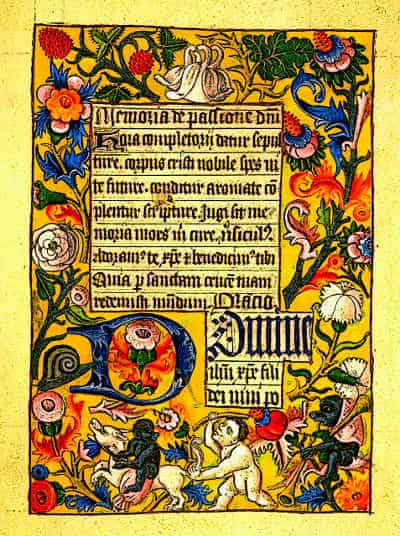 Memoria de passione dn̄i
Hora completorij datur sepul
ture. corpus cristi nobile spes vi
te future. conditur aromate cō
plentur scripture. Jugi sit me
moria mors in cure. v̄siculꝰ
Adoramꝰ te xp̄e ⁊ benedicimꝰ tibi
Quia ꝑ sanctam crucē tuam
redemisti mūdum. Oracio
Domine
ihū xp̄e fili
dei viui po